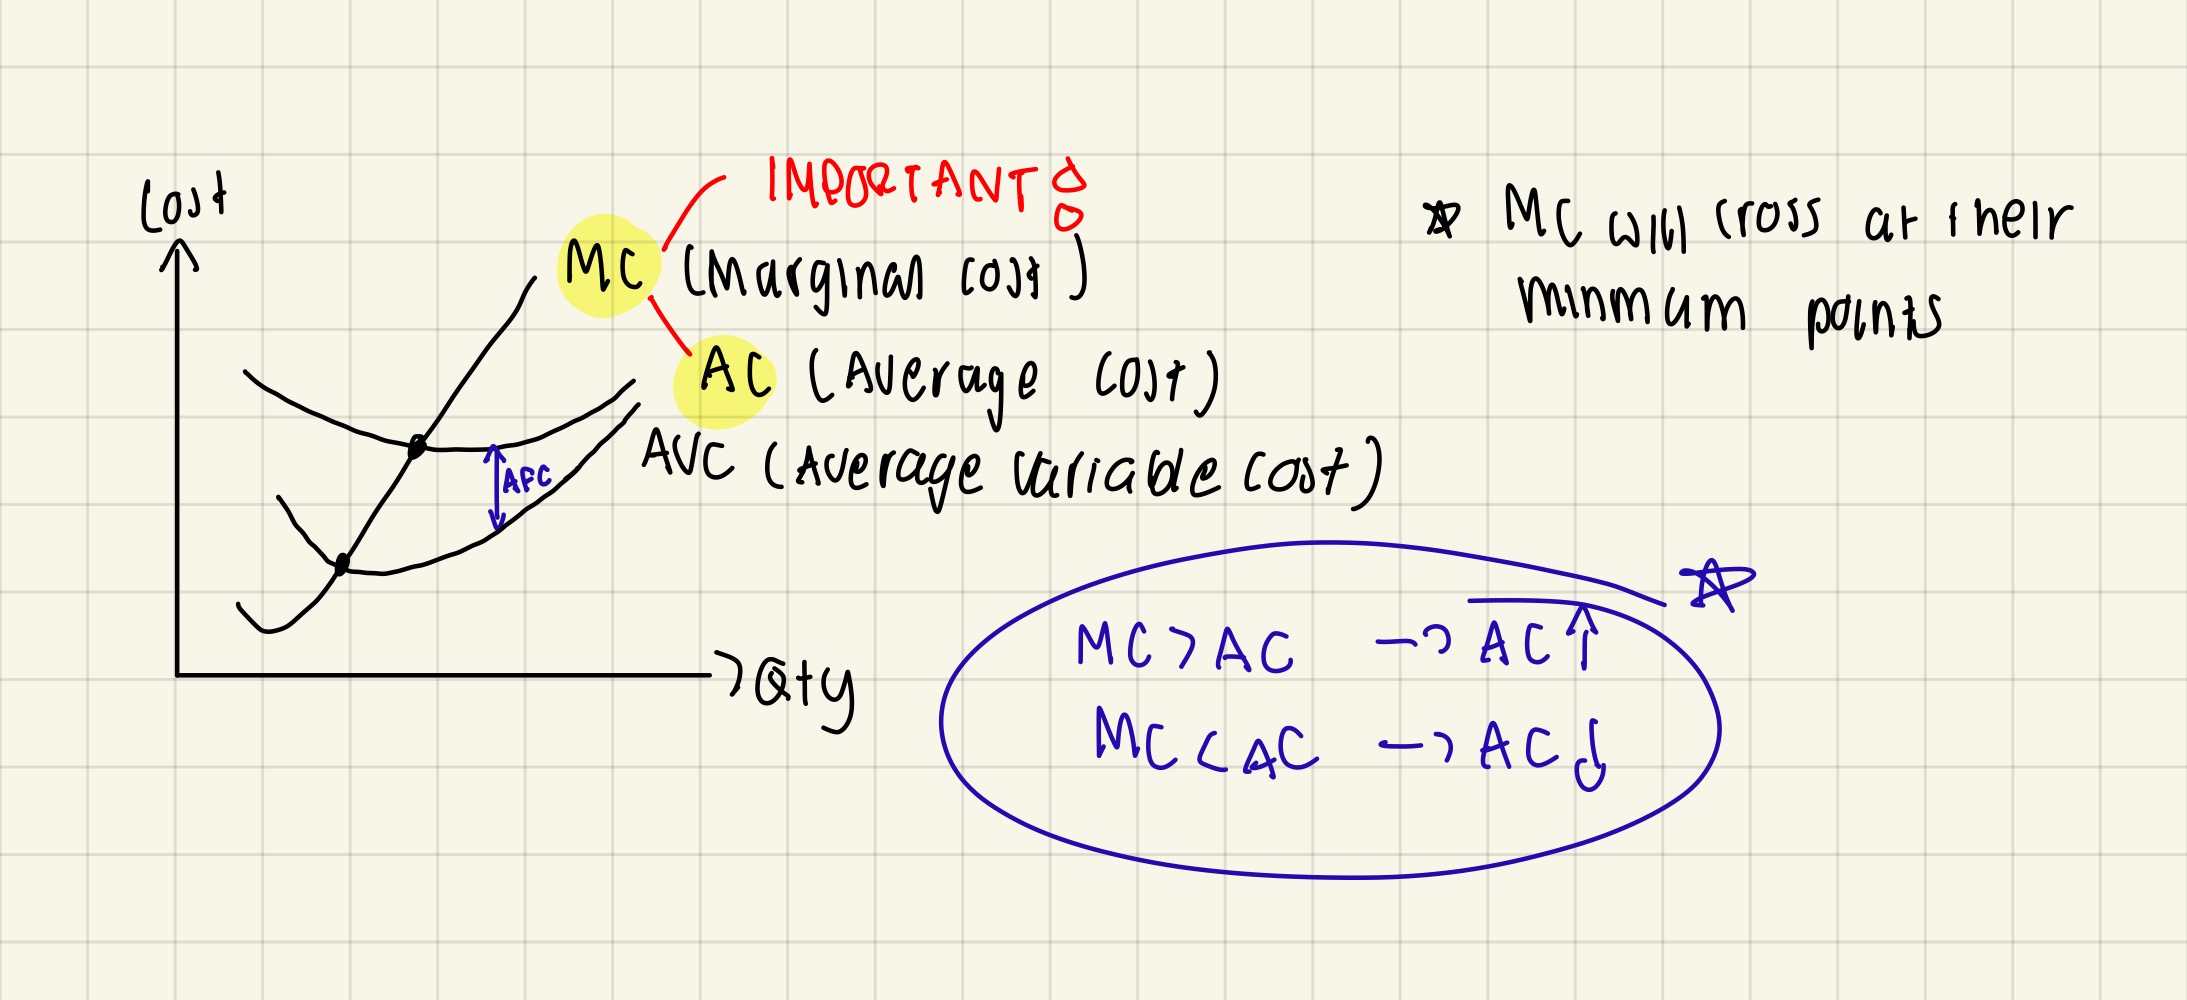 Cost
IMPORTANT!
MC (Marginal cost)
AC (Average Cost)
AVC (Average Variable Cost)
AFC
Qty
☆ MC will cross at their
minmum points
MC > AC → AC↑ ☆
MC < AC → AC↓